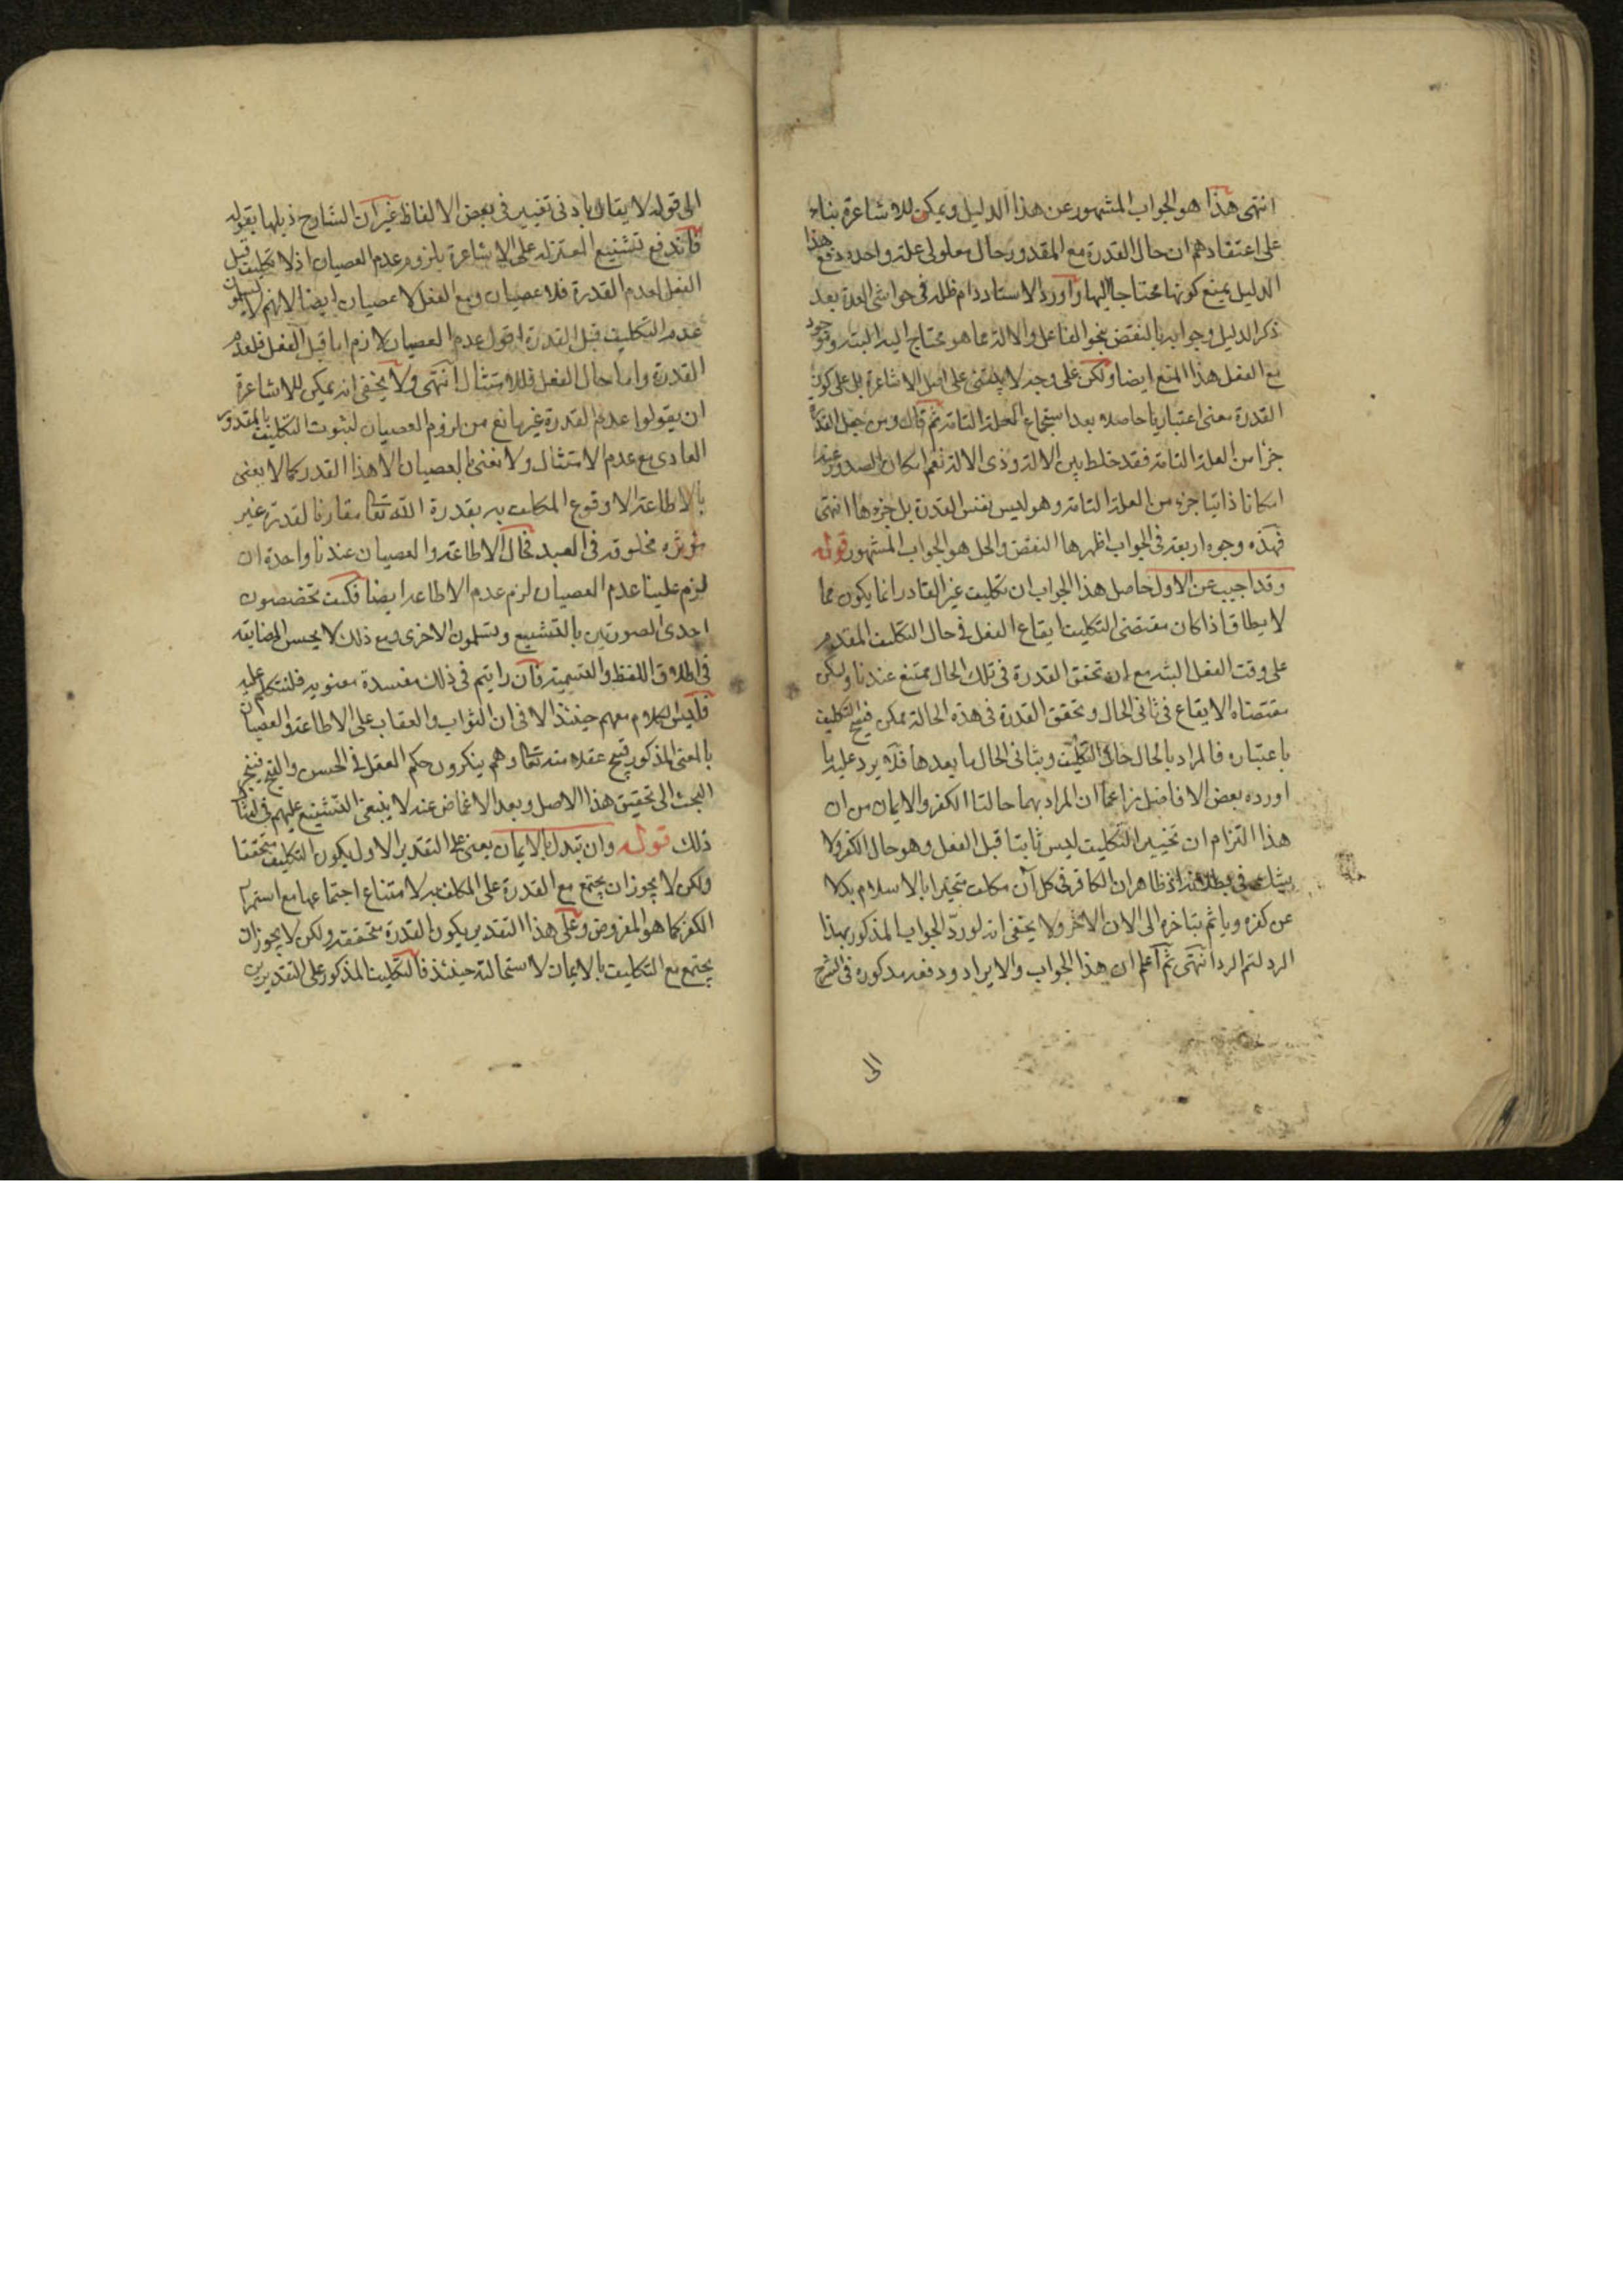 انتهى هذا هو الجواب المشهور عن هذا الدليل ويمكن للاشاعرة بناء
على اعتقادهم ان حال القدرة مع المقدور حال معلولى علة واحدة دفع هذا
الدليل بمنع كونها محتاجا اليها واورد الاستاد دام ظله فى حواشى العدة بعد
ذكر الدليل وجوابه بالنقض بنحو الفاعل والالة مما هو محتاج اليه البتة وموجود
مع الفعل هذا المنع ايضا ولكن على وجه لا يبتنى على اصل الاشاعرة بل على كون
القدرة معنى اعتباريا حاصلا بعد استجماع العلة التامة ثم قال ومن جعل القدرة
جزأ من العلة التامة فقد خلط بين الالة وذى الالة نعم امكان الصدور عنه
امكانا ذاتيا جزء من العلة التامة وهو ليس نفس القدرة بل جزءها انتهى
فهذه وجوه اربعة فى الجواب اظهرها النقض والحل هو الجواب المشهور قوله
وقد اجيب عن الاول حاصل هذا الجواب ان تكليف غير القادر انما يكون مما
لا يطاق اذا كان مقتضى التكليف ايقاع الفعل فى حال التكليف المقدم
على وقت الفعل البتة مع ان تحقق القدرة فى تلك الحال ممتنع عندنا ولكن
مقتضاه الايقاع فى ثانى الحال وتحقق القدرة فى هذه الحالة ممكن فيصح التكليف
باعتباره فالمراد بالحال حال التكليف وبثانى الحال ما بعدها فلا يرد عليه ما
اورده بعض الافاضل زاعما ان المراد بهما حالتا الكفر والايمان من ان
هذا التزام ان تخيير التكليف ليس ثابتا قبل الفعل وهو حال الكفر ولا
يشك فى بطلانه اذ ظاهر ان الكافر فى كل آن مكلف متخيرا بالاسلام بدلا
عن كفره وياثم بتاخره الى الان الاخر ولا يخفى انه لو رد الجواب المذكور بهذا
الرد لتم الرد انتهى ثم اعلم ان هذا الجواب والايراد ودفعه مذكوره فى الشرح
الى
الى قوله لا يقال بادنى تغيير فى بعض الالفاظ غير ان الشارح ذيلها بقوله
فاندفع تشنيع المعتزلة على الاشاعرة بلزوم عدم العصيان اذ لا تكليف قبل
الفعل لعدم القدرة فلا عصيان ومع الفعل لا عصيان ايضا لانهم لا يسلمون
عدم التكليف قبل القدرة اقول عدم العصيان لازم اما قبل الفعل فلعدم
القدرة واما حال الفعل فللامتثال انتهى ولا يخفى انه يمكن للاشاعرة
ان يقولوا عدم القدرة غير مانع من لزوم العصيان لثبوت التكليف بالمقدور
العادى مع عدم الامتثال ولا نعنى بالعصيان الا هذا القدر كما لا يعنى
بالاطاعة الا وقوع المكلف به بقدرة الله تعا مقارنا لقدرة غير
مؤثره مخلوقه فى العبد فحال الاطاعة والعصيان عندنا واحدة ان
لزم علينا عدم العصيان لزم عدم الاطاعة ايضا فكيف تخصصون
احدى الصورتين بالتشنيع وتسلمون الاخرى ومع ذلك لا يحسن المضايقه
فى اطلاق اللفظ والتسمية فان رايتم فى ذلك مفسدة معنويه فلنتكلم عليه
فليس الكلام معهم حينئذ الا فى ان الثواب والعقاب على الاطاعة والعصيان
بالمعنى المذكور قبيح عقلا منه تعا وهم ينكرون حكم العقل فى الحسن والقبح فينجر
البحث الى تحقيق هذا الاصل وبعد الاغماض عنه لا ينبغى التشنيع عليهم فى امثال
ذلك قوله وان تبدل بالايمان يعنى على التقدير الاول يكون التكليف متحققا
ولكن لا يجوز ان يجتمع مع القدرة على المكلف به لامتناع اجتماعها مع استمرار
الكفر كما هو المفروض وعلى هذا التقدير يكون القدرة متحققه ولكن لا يجوز ان
يجتمع مع التكليف بالايمان لاستحالته حينئذ فالتكليف المذكور على التقديرين